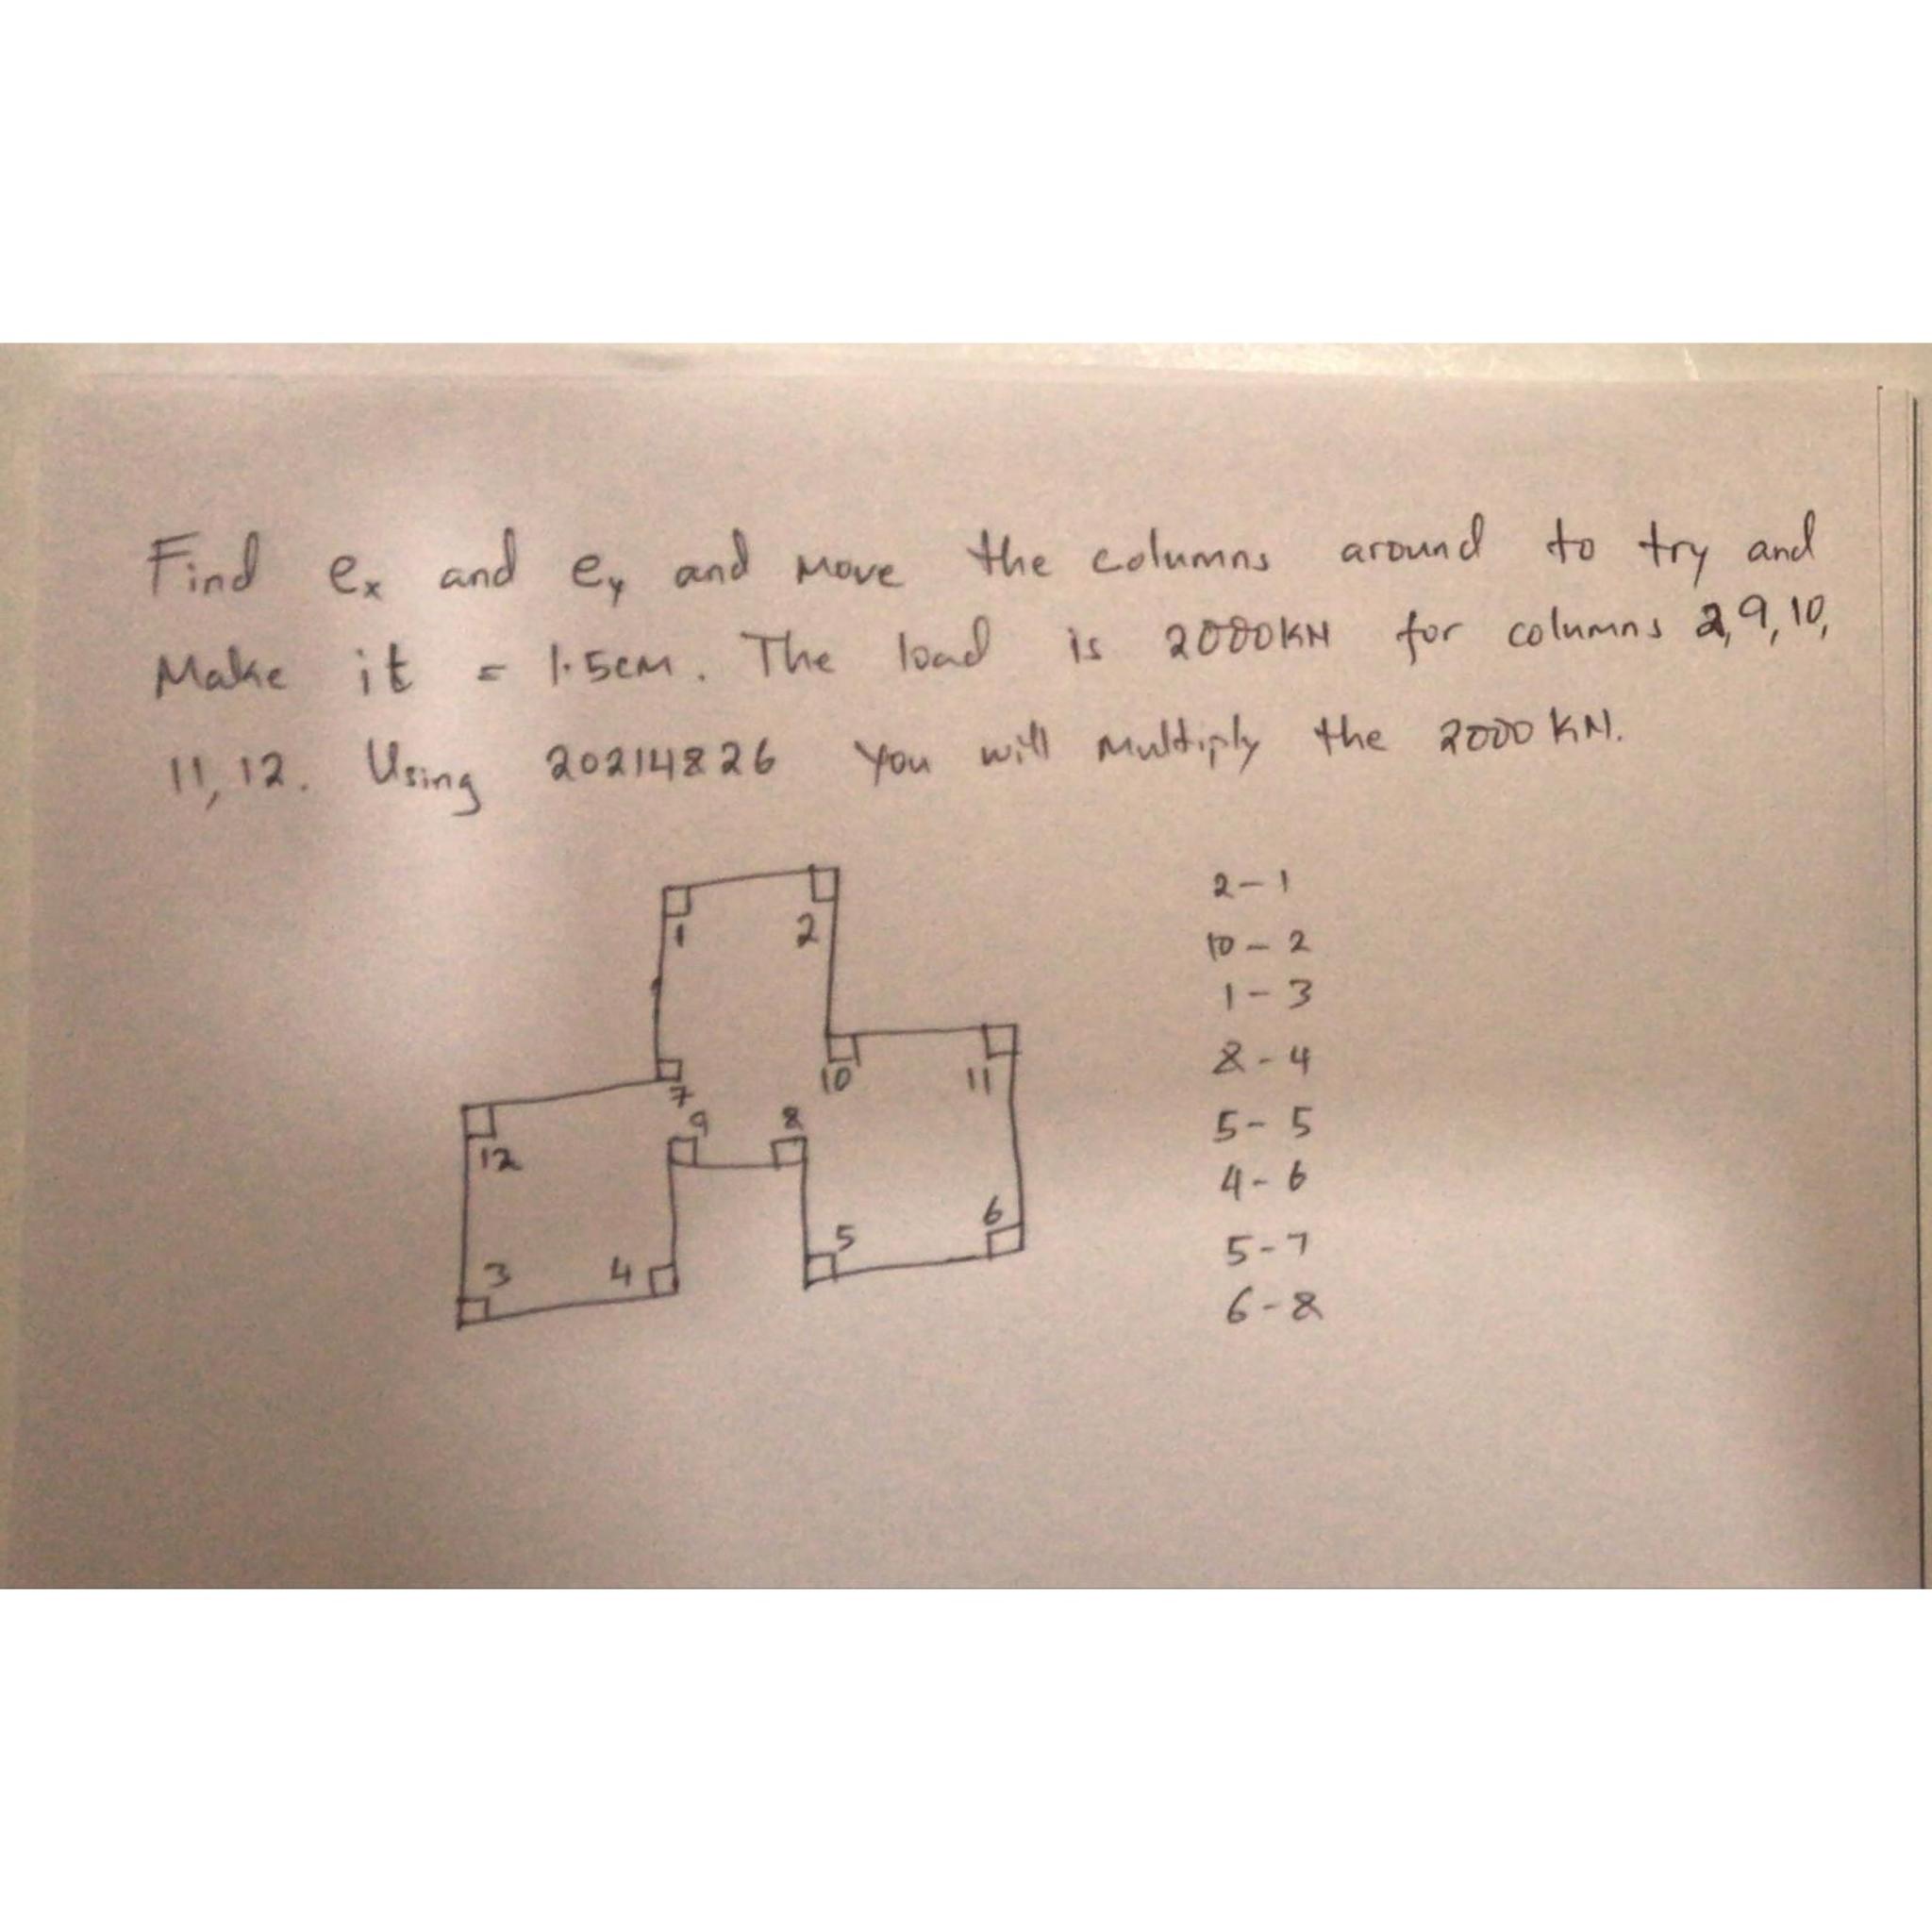 Find ex and ey and move the columns around to try and
Make it = 1.5cm. The load is 2000KN for columns 2,9,10,
11,12. Using 20214826 you will multiply the 2000 KN.
1
2
7
10
11
9
8
12
6
5
3
4
2-1
10-2
1-3
8-4
5-5
4-6
5-7
6-8